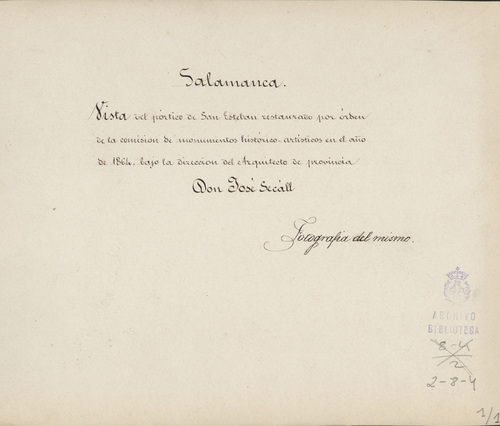 Salamanca.
Vista del pórtico de San Esteban restaurado por órden
de la comision de monumentos histórico-artísticos en el año
de 1864. bajo la direccion del Arquitecto de provincia
Don José Secáll
Fotografia del mismo.
ARCHIVO
BIBLIOTECA
8-4
2
2-8-4
1/1